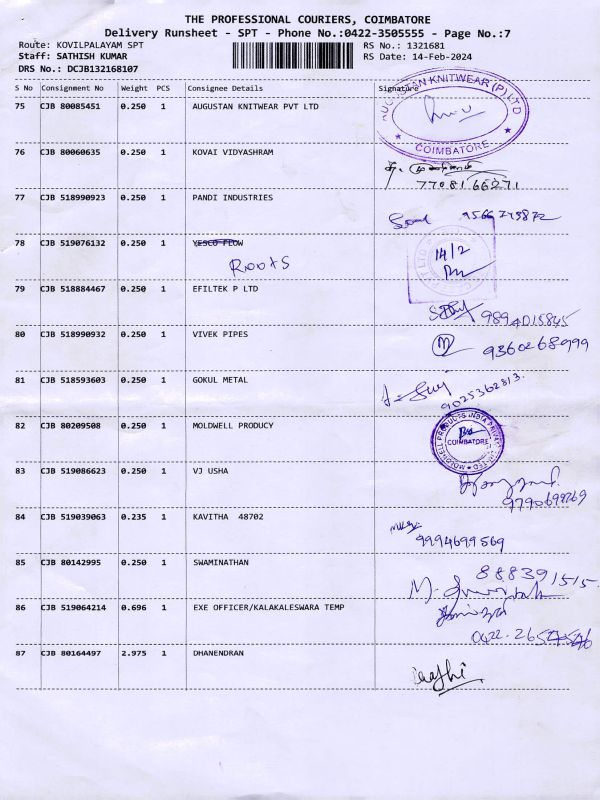 THE PROFESSIONAL COURIERS, COIMBATORE
Delivery Runsheet - SPT - Phone No.:0422-3505555 - Page No.:7
Route: KOVILPALAYAM SPT RS No.: 1321681
Staff: SATHISH KUMAR RS Date: 14-Feb-2024
DRS No.: DCJB132168107
S No Consignment No Weight PCS Consignee Details Signature
75 CJB 80085451 0.250 1 AUGUSTAN KNITWEAR PVT LTD
AUGUSTAN KNITWEAR (P) LTD
COIMBATORE
76 CJB 80060635 0.250 1 KOVAI VIDYASHRAM
7708166271
77 CJB 518990923 0.250 1 PANDI INDUSTRIES
78 CJB 519076132 0.250 1 YESCO FLOW
Roots
14/2
79 CJB 518884467 0.250 1 EFILTEK P LTD
9894015845
80 CJB 518990932 0.250 1 VIVEK PIPES
9360268999
81 CJB 518593603 0.250 1 GOKUL METAL
9025362813
82 CJB 80209508 0.250 1 MOLDWELL PRODUCY
MOLDWELL PRODUCTS INDIA PRIVATE LIMITED
COIMBATORE
83 CJB 519086623 0.250 1 VJ USHA
84 CJB 519039063 0.235 1 KAVITHA 48702
9994699569
85 CJB 80142995 0.250 1 SWAMINATHAN
888391515
86 CJB 519064214 0.696 1 EXE OFFICER/KALAKALESWARA TEMP
87 CJB 80164497 2.975 1 DHANENDRAN